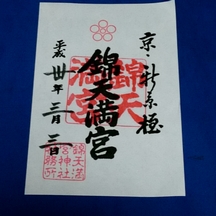 京・新京極
錦天満宮
平成卅年三月三日
錦天満宮
錦天満
宮神社
務所